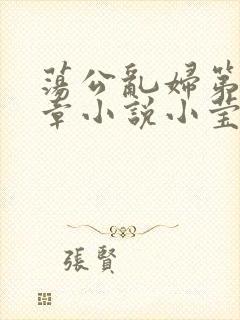 蕩公亂婦第
章小說小莹
張賢